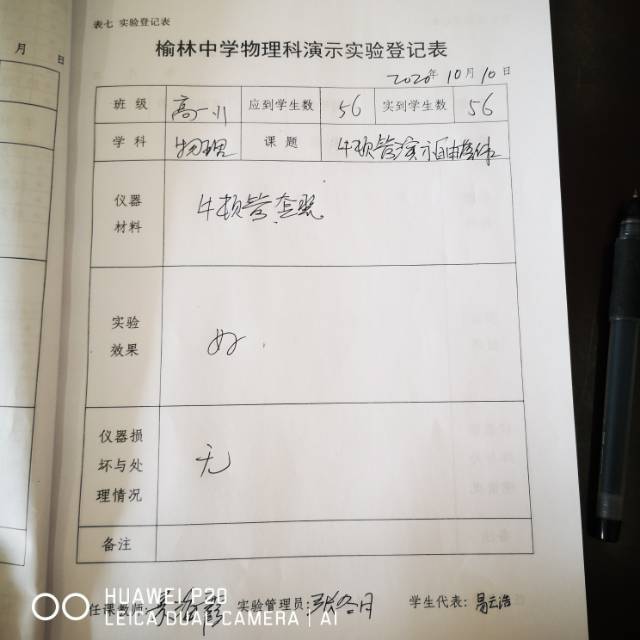 月 日
表七 实验登记表
榆林中学物理科演示实验登记表
2020年 10月 10日
班 级 高一 应到学生数 56 实到学生数 56
学 科 物理 课 题 牛顿管演示自由落体
仪器
材料
牛顿管套装
实验
效果
好
仪器损
坏与处
理情况
无
备注
任课教师: 实验管理员: 张冬月 学生代表: 易云浩
HUAWEI P20
LEICA DUAL CAMERA | AI